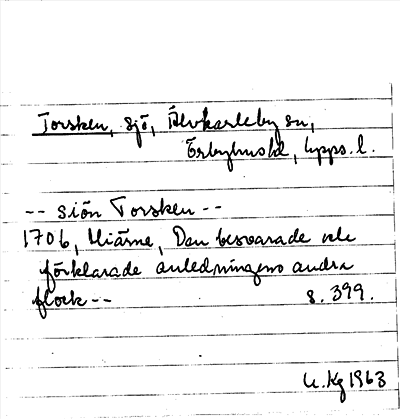 Torsken, sjö, Älvkarleby sn,
Örbyhus hd, Upps. l.
-- siön Torsken --
1706, Hiärne, Den besvarade och
förklarade anledningens andra
flock -- s. 399.
U. Kg 1963